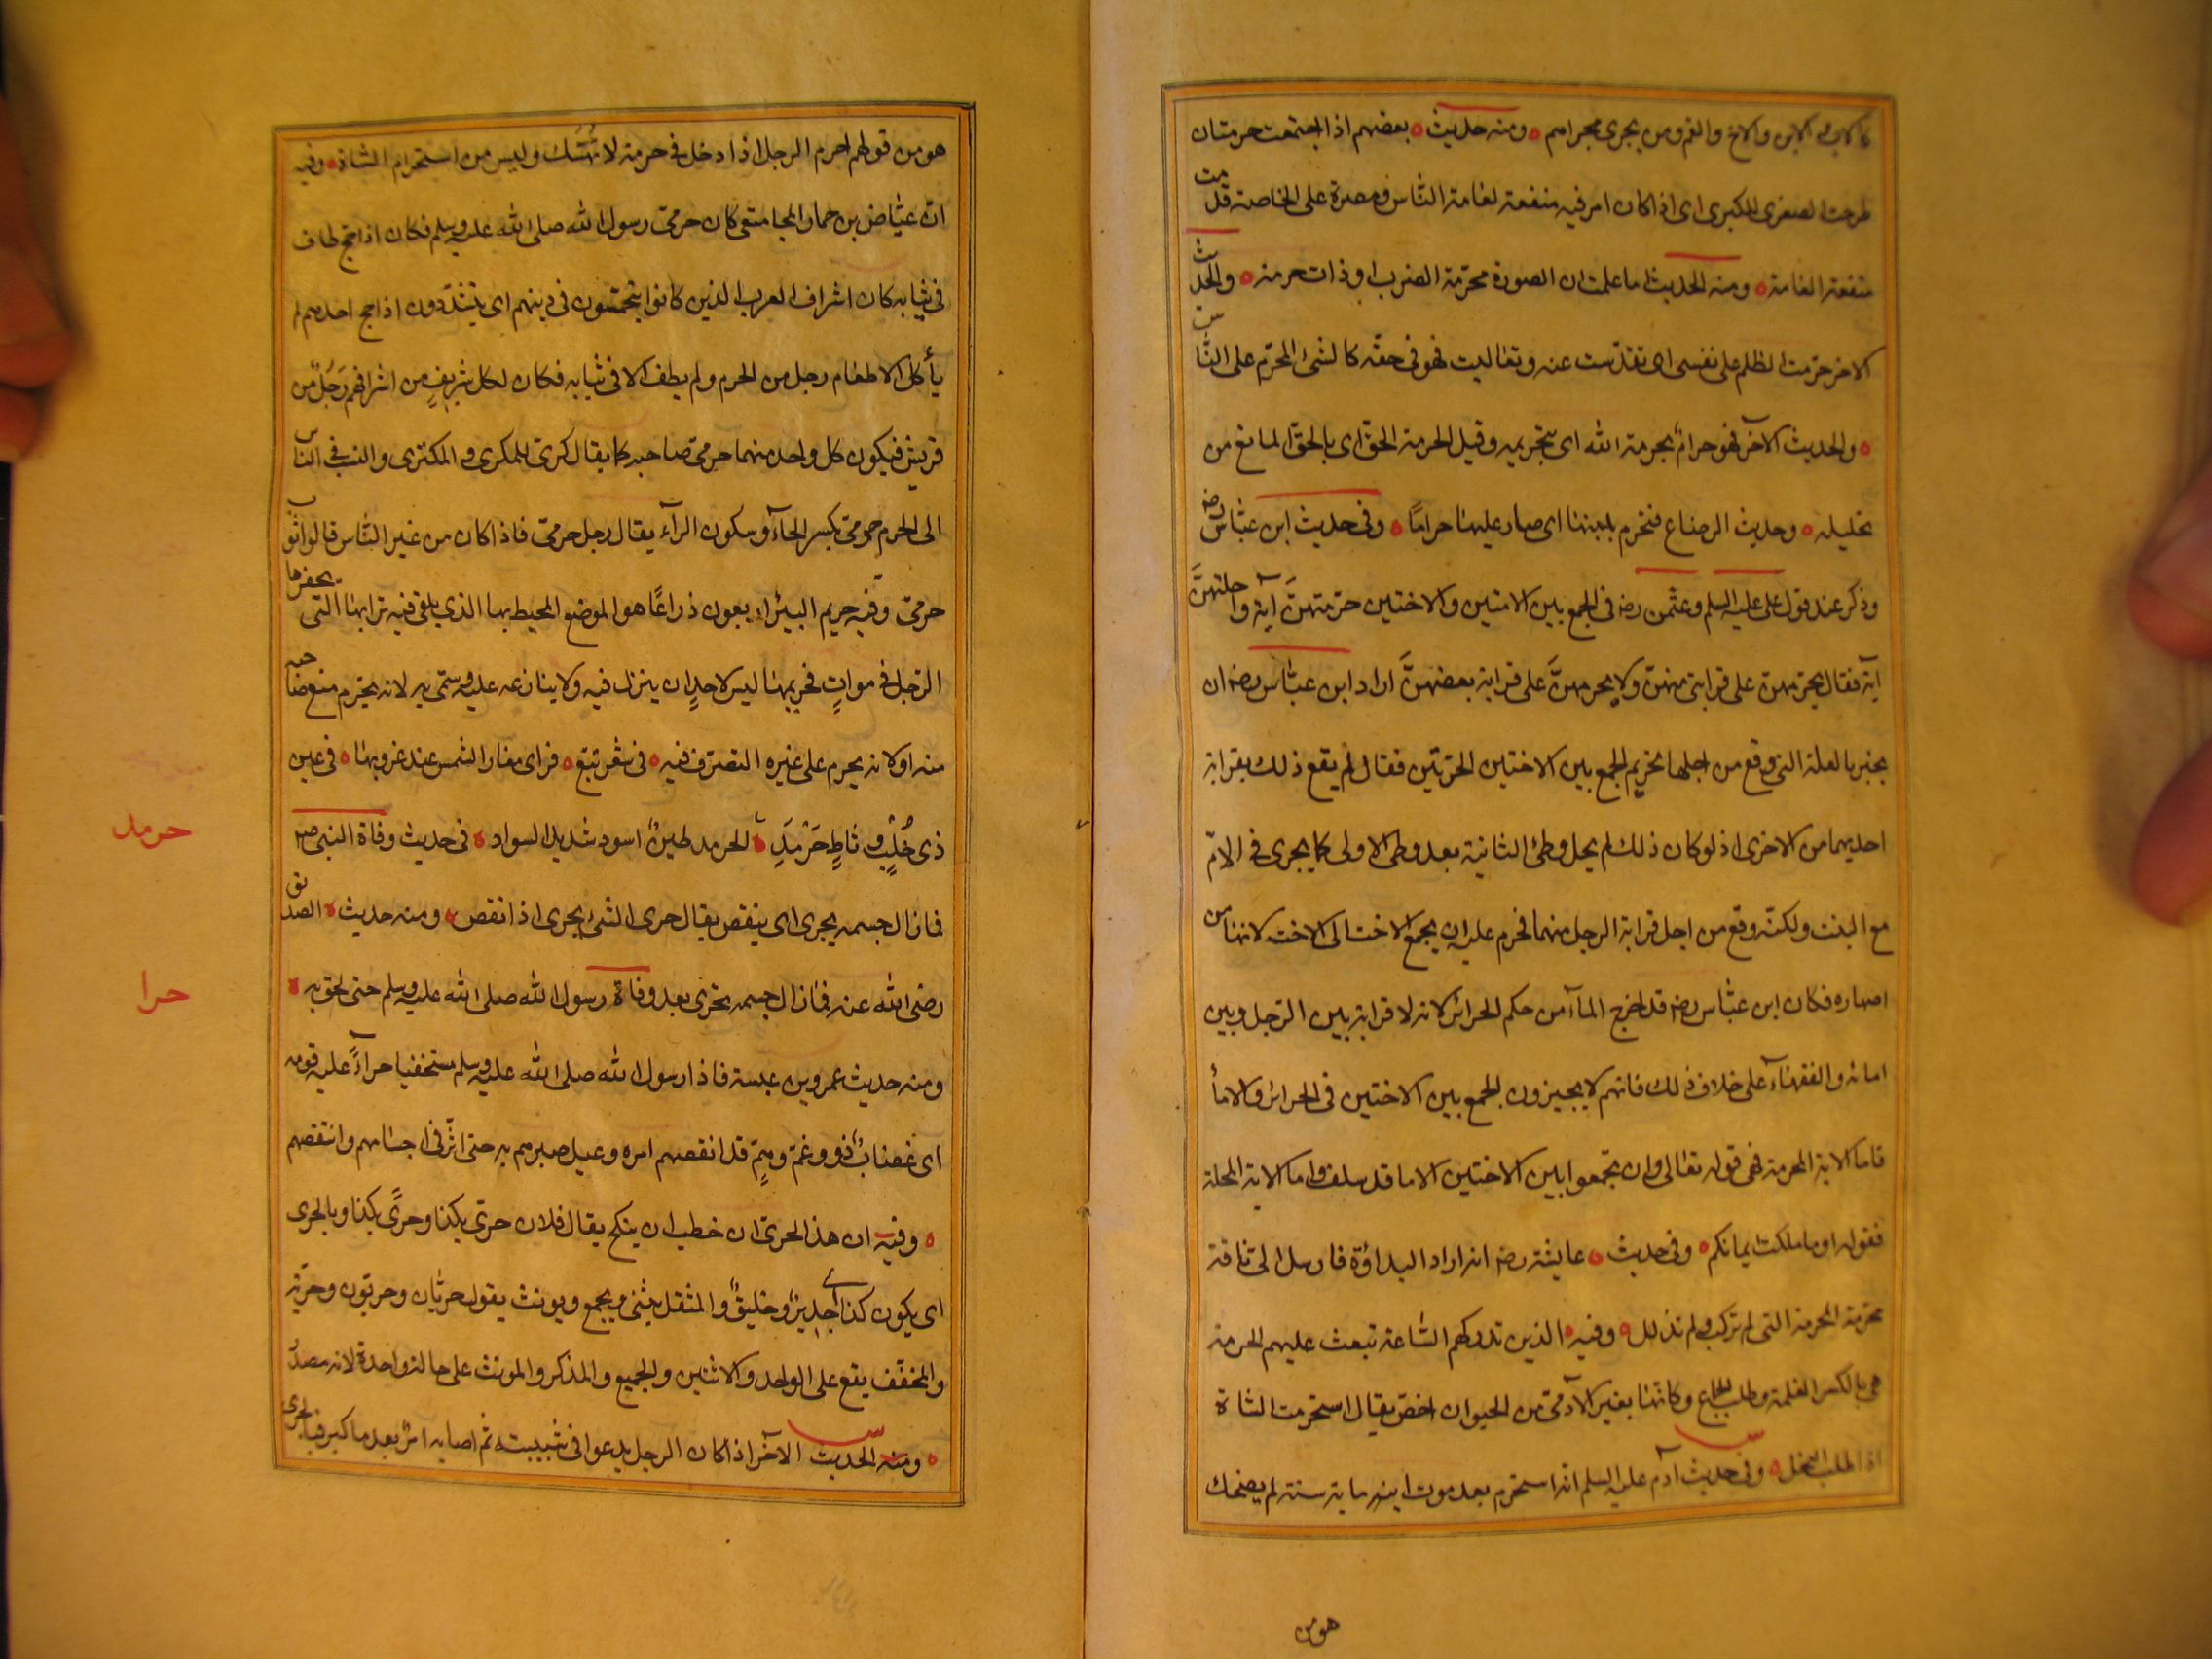 كالاب و الابن والاخ والعم ومن يجرى مجراهم ومنه حديث بعضهم اذا اجتمعت حرمتان
طرحت الصغرى للكبرى اى اذا كان امر فيه منفعة لعامة الناس ومضرة على الخاصة قدمت
منفعة العامة ومنه الحديث اما علمت ان الصورة محرمة الضرب اى ذات حرمة والحديث
الاخر حرمت الظلم على نفسى اى تقدست عنه وتعاليت فهو فى حقه كالشئ المحرم على الناس
والحديث الآخر فهو حرام بحرمة الله اى بتحريمه وقيل الحرمة الحق اى بالحق المانع من
تحليله وحديث الرضاع فتحرم بلبنها اى صار عليها حراما وفى حديث ابن عباس رضـ
وذكر عند قول على عليه السلم وعثمن رضـ فى الجمع بين الامتين والاختين حرمتهن آية واحلتهن
آية فقال يحرمهن على قرابتى منهن ولا يحرمهن على قرابة بعضهن اراد ابن عباس رضـ ان
يخبر بالعلة التى وقع من اجلها تحريم الجمع بين الاختين الحرتين فقال لم يقع ذلك بقرابة
احديهما من الاخرى اذ لو كان ذلك لم يحل وطئ الثانية بعد وطى الاولى كما يجرى فى الام
مع البنت ولكنه وقع من اجل قرابة الرجل منهما فحرم عليه ان يجمع الاخت الى الاخت لانها من
اصهاره فكان ابن عباس رضـ قد اخرج المآء من حكم الحرائر لانه لا قرابة بين الرجل وبين
امائه والفقهاء على خلاف ذلك فانهم لا يجيزون الجمع بين الاختين فى الحرائر والامأ
فاما الاية المحرمة فهى قوله تعالى وان تجمعوا بين الاختين الا ما قد سلف واما الاية المحلة
فقوله او ما ملكت ايمانكم وفى حديث عايشة رضـ انه اراد البداوة فارسل الى ناقة
محرمة المحرمة التى لم تركب ولم تذلل وفيه الذين تدركهم الساعة تبعث عليهم الحرمة
هى بالكسر الغلمة وطلب الجماع وكانها بغير الآدمى من الحيوان اخص يقال استحرمت الشاة
اذا طلب الفحل وفى حديث آدم عليه السلم انه استحرم بعد موت ابنه ماية سنة لم يضحك
هو من
هو من قولهم احرم الرجل اذا دخل فى حرمة لا تهتك وليس من استحرام الشاة وفيه
ان عياض بن حمار المجاشعى كان حرمى رسول الله صلى الله عليه وسلم فكان اذا حج طاف
فى ثيابه كان اشراف العرب الذين كانوا يتحمسون فى دينهم اى يتشددون اذا حج احدهم لم
يأكل الا طعام رجل من الحرم ولم يطف الا فى ثيابه فكان لكل شريف من اشرافهم رجل من
قريش فيكون كل واحد منهما حرمى صاحبه كما يقال كرى للمكرى و المكترى والنسب فى الناس
الى الحرم حرمى بكسر الحآء وسكون الرآء يقال رجل حرمى فاذا كان من غير الناس قالوا ثوب
حرمى وفيه حريم البير اربعون ذراعا هو الموضع المحيط بها الذي يلقى فيه ترابها التى يحفرها
الرجل فى موات فحريمها ليس لاحد ان ينزل فيه ولا ينازعه عليه وسمى به لانه يحرم منع صاحبه
منه او لانه يحرم على غيره التصرف فيه فى شعر تبع فراى مغار الشمس عند غروبها فى عين
ذى خلب وثاط حرمد الحرمد طين اسود شديد السواد فى حديث وفاة النبى صم
حرمد
فمازال جسمه يحرى اى ينقص يقال حرى الشئ يحرى اذا نقص ومنه حديث الصديق
رضى الله عنه فمازال جسمه يحرى بعد وفاة رسول الله صلى الله عليه وسلم حتى لحق به
حرا
ومنه حديث عمرو بن عبسة فاذا رسول الله صلى الله عليه وسلم مستخفيا حرآء عليه قومه
اى غضاب ذوو غم وهم قد انقصهم امره وعيل صبرهم به حتى اثر فى اجسامهم وانتقصهم
وفيه ان هذا الحرى ان خطب ان ينكح يقال فلان حرى بكذا وحرى بكذا وبالحرى
اى يكون كذا اى جدير وخليق والمثقل يثنى ويجمع ويونث يقول حريان وحريون وحرية
والمخفف يقع على الواحد والاثنين والجميع والمذكر والمونث على حالة واحدة لانه مصدر
ومنه الحديث الآخر اذا كان الرجل يدعوا فى شبيبته ثم اصابه امر بعد ما كبر فبالحرى